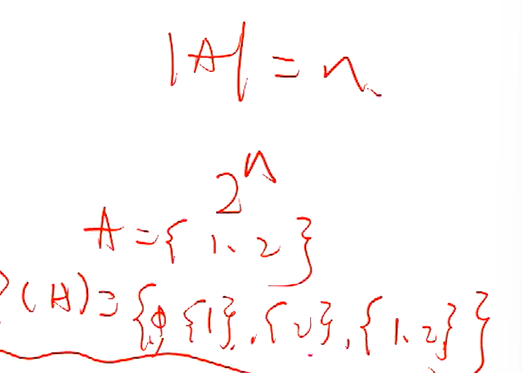 |A| = n
2^n
A = {1, 2}
P(A) = {ϕ {1}, {2}, {1, 2}}